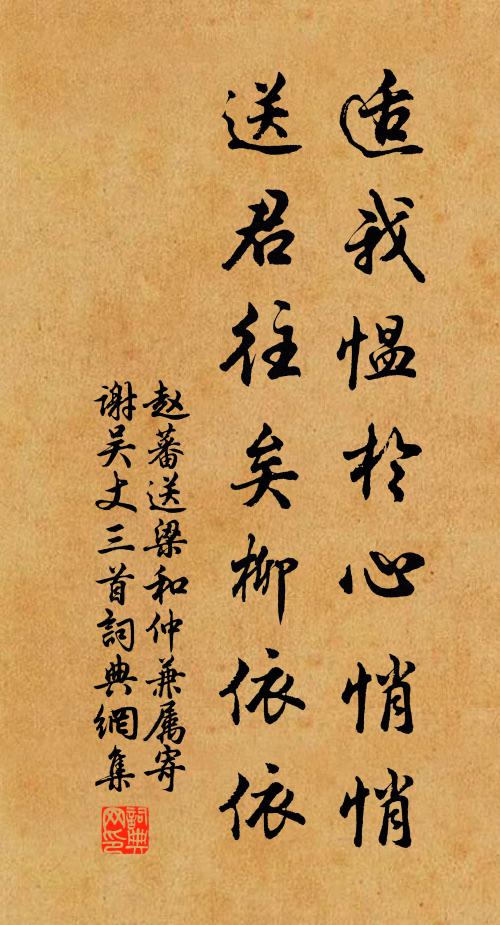 适我愠於心悄悄
送君往矣柳依依
赵蕃送梁和仲兼属寄
谢吴丈三首詞典網集
詞典网印